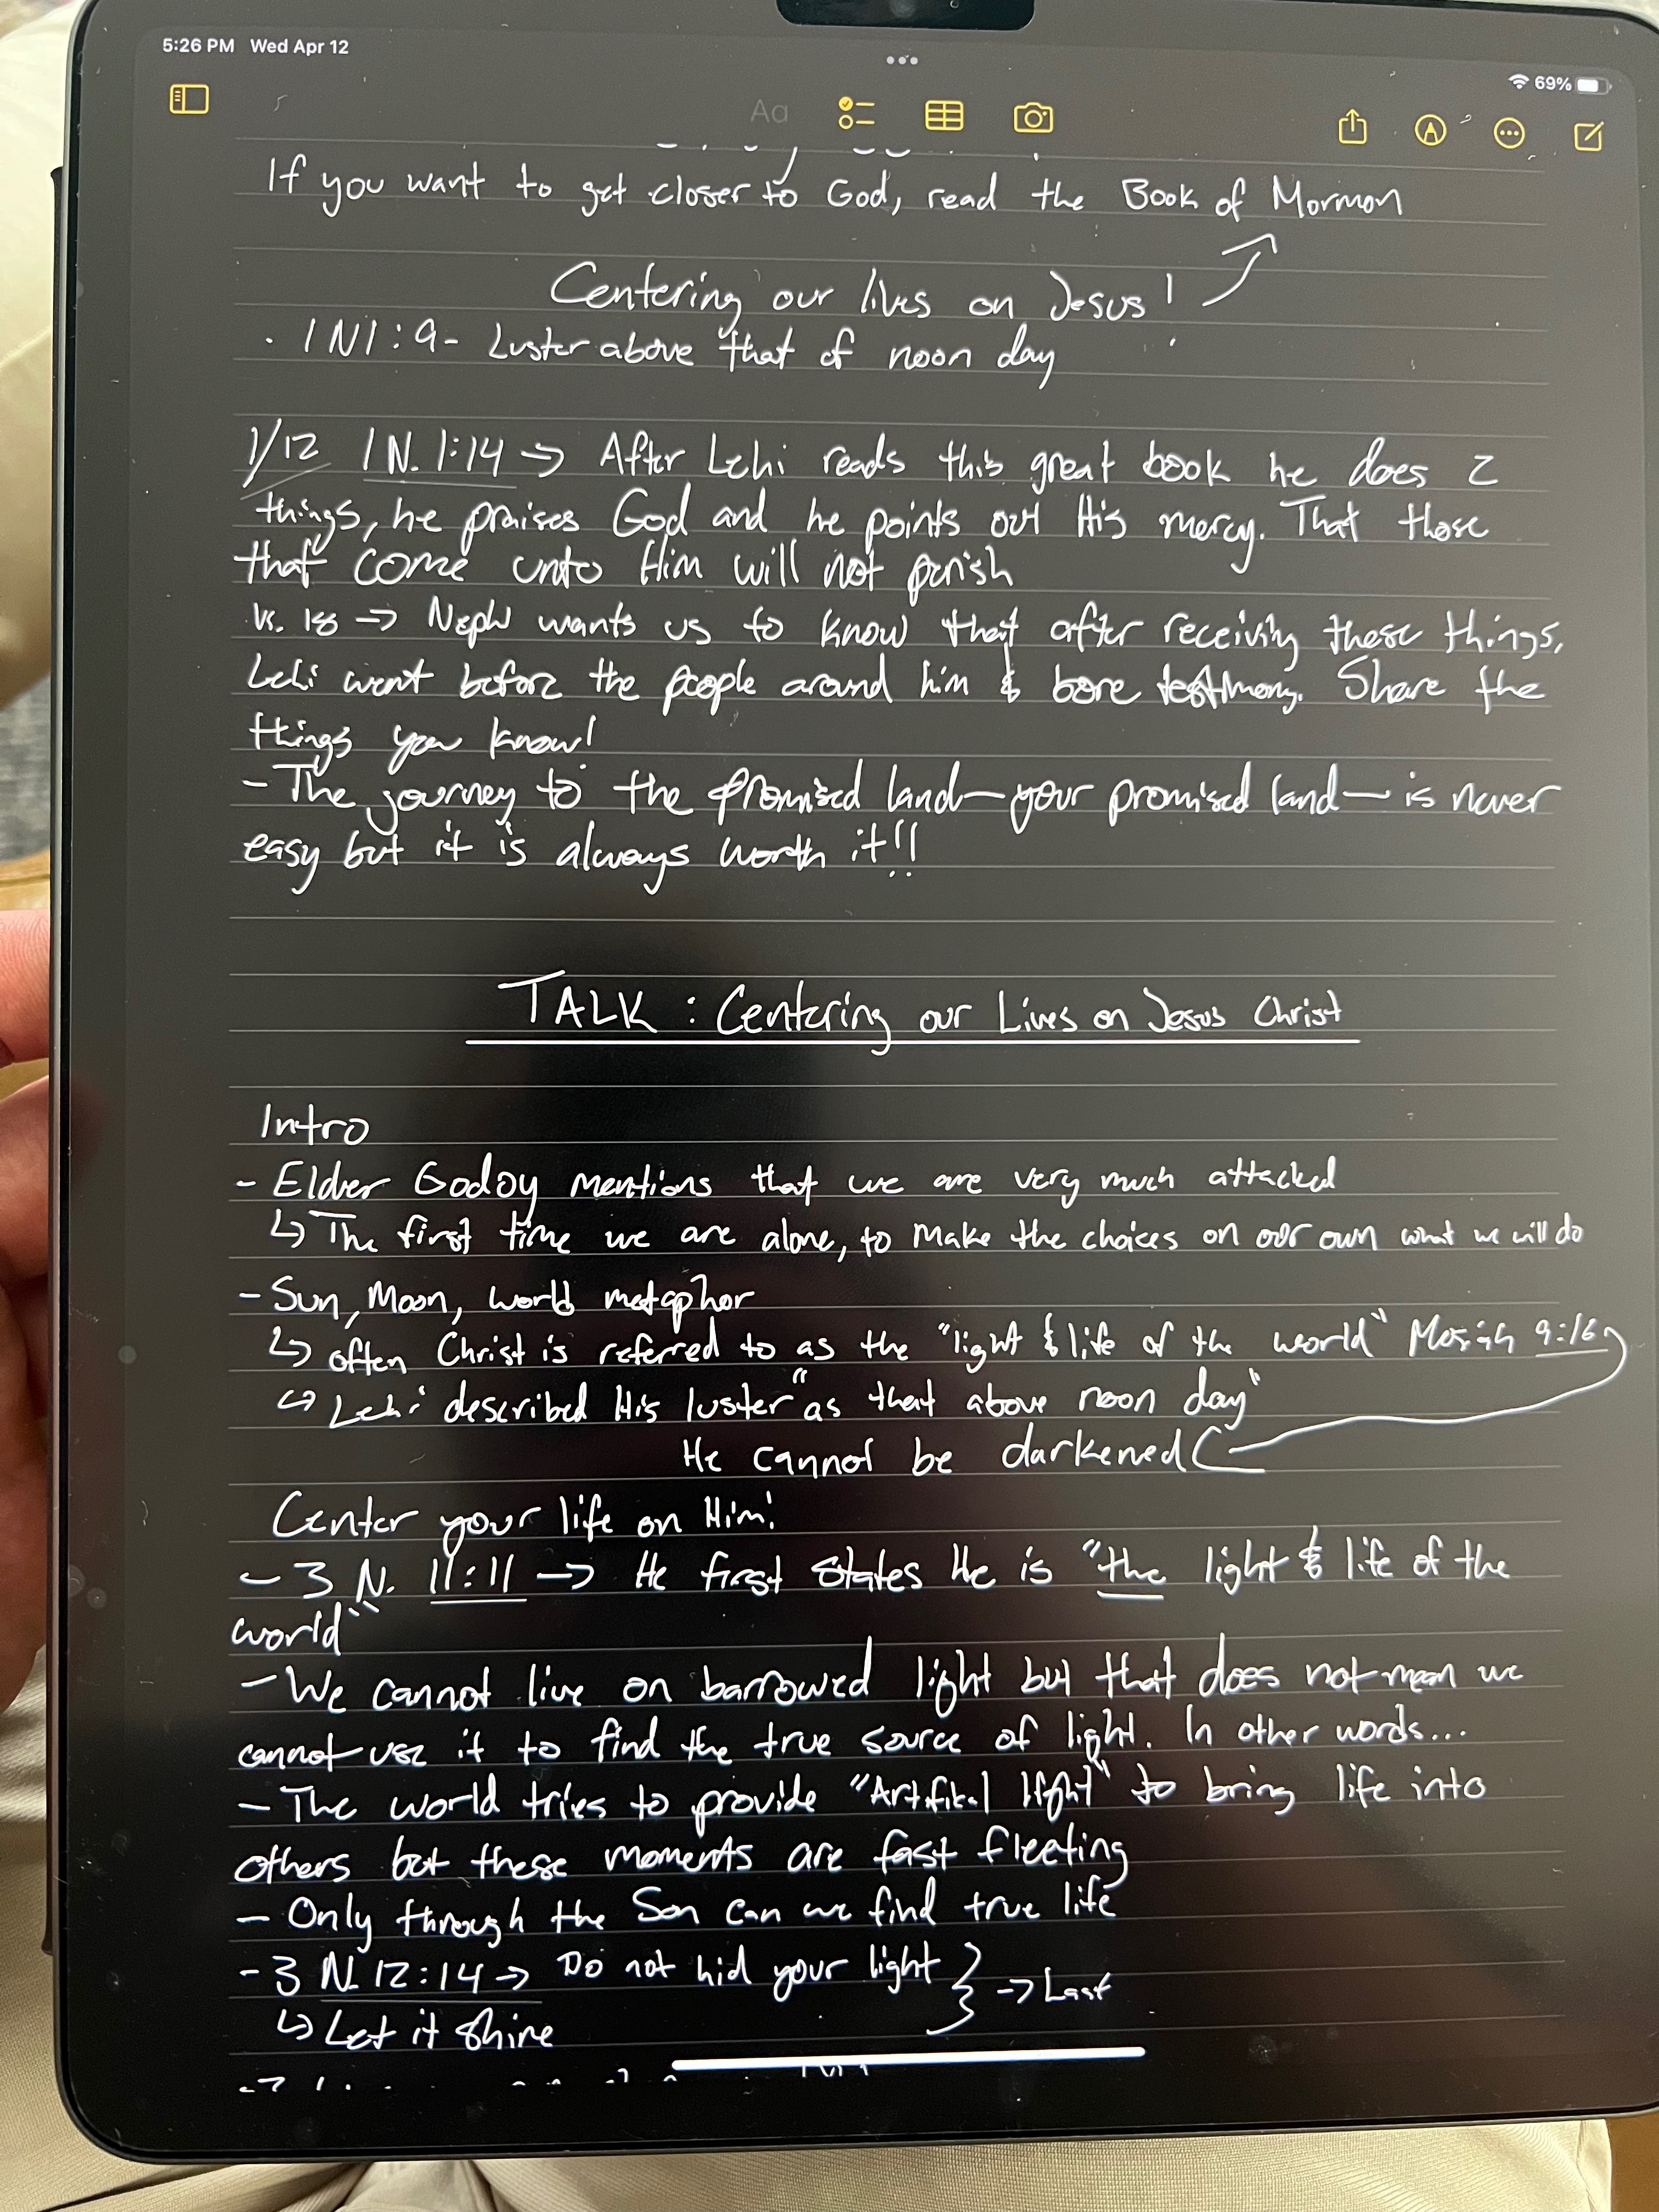 5:26 PM Wed Apr 12
69%
Aa
If you want to get closer to God, read the Book of Mormon
Centering our lives on Jesus!
· 1N1:9- Luster above that of noon day
1/12 1 N. 1:14 → After Lehi reads this great book he does 2
things, he praises God and he points out His mercy. That those
that come unto Him will not perish
Vs. 18 → Nephi wants us to know that after receiving these things,
Lehi went before the people around him & bore testimony. Share the
things you know!
- The journey to the promised land—your promised land— is never
easy but it is always worth it!!
TALK : Centering our Lives on Jesus Christ
Intro
- Elder Godoy mentions that we are very much attacked
↳ The first time we are alone, to make the choices on our own what we will do
- Sun, Moon, world metaphor
↳ often Christ is referred to as the "light & life of the world" Mosiah 9:16
↳ Lehi described His luster "as that above noon day"
He cannot be darkened
Center your life on Him!
- 3 N. 11:11 → He first states He is "the light & life of the
world"
- We cannot live on barrowed light but that does not mean we
cannot use it to find the true source of light. In other words...
- The world tries to provide "Artifital light" to bring life into
others but these moments are fast fleeting
- Only through the Son can we find true life
- 3 N. 12:14 → Do not hid your light } → Last
↳ Let it shine